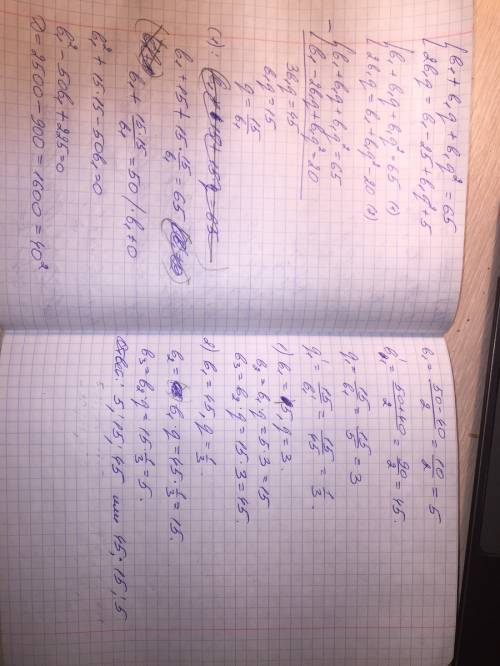 {b₁ + b₁q + b₁q² = 65
{2b₁q = b₁ - 25 + b₁q² + 5
{b₁ + b₁q + b₁q² = 65 (1)
{2b₁q = b₁ + b₁q² - 20 (2)
- {b₁ + b₁q + b₁q² = 65
{b₁ - 2b₁q + b₁q² = 20
3b₁q = 45
b₁q = 15
q = 15/b₁
(1):
b₁ + 15 + 15 · 15/b₁ = 65
b₁ + 15·15/b₁ = 50 | · b₁ ≠ 0
b₁² + 15·15 - 50b₁ = 0
b₁² - 50b₁ + 225 = 0
D = 2500 - 900 = 1600 = 40²
b₁ = (50-40)/2 = 10/2 = 5
b₁' = (50+40)/2 = 90/2 = 45.
q₁ = 15/b₁ = 15/5 = 3
q₁' = 15/b₁' = 15/45 = 1/3.
1) b₁ = 5, q = 3.
b₂ = b₁ · q = 5 · 3 = 15
b₃ = b₂ · q = 15 · 3 = 45.
2) b₁ = 45, q = 1/3.
b₂ = b₁ · q = 45 · 1/3 = 15.
b₃ = b₂ · q = 15 · 1/3 = 5.
Ответ: 5; 15; 45 или 45; 15; 5